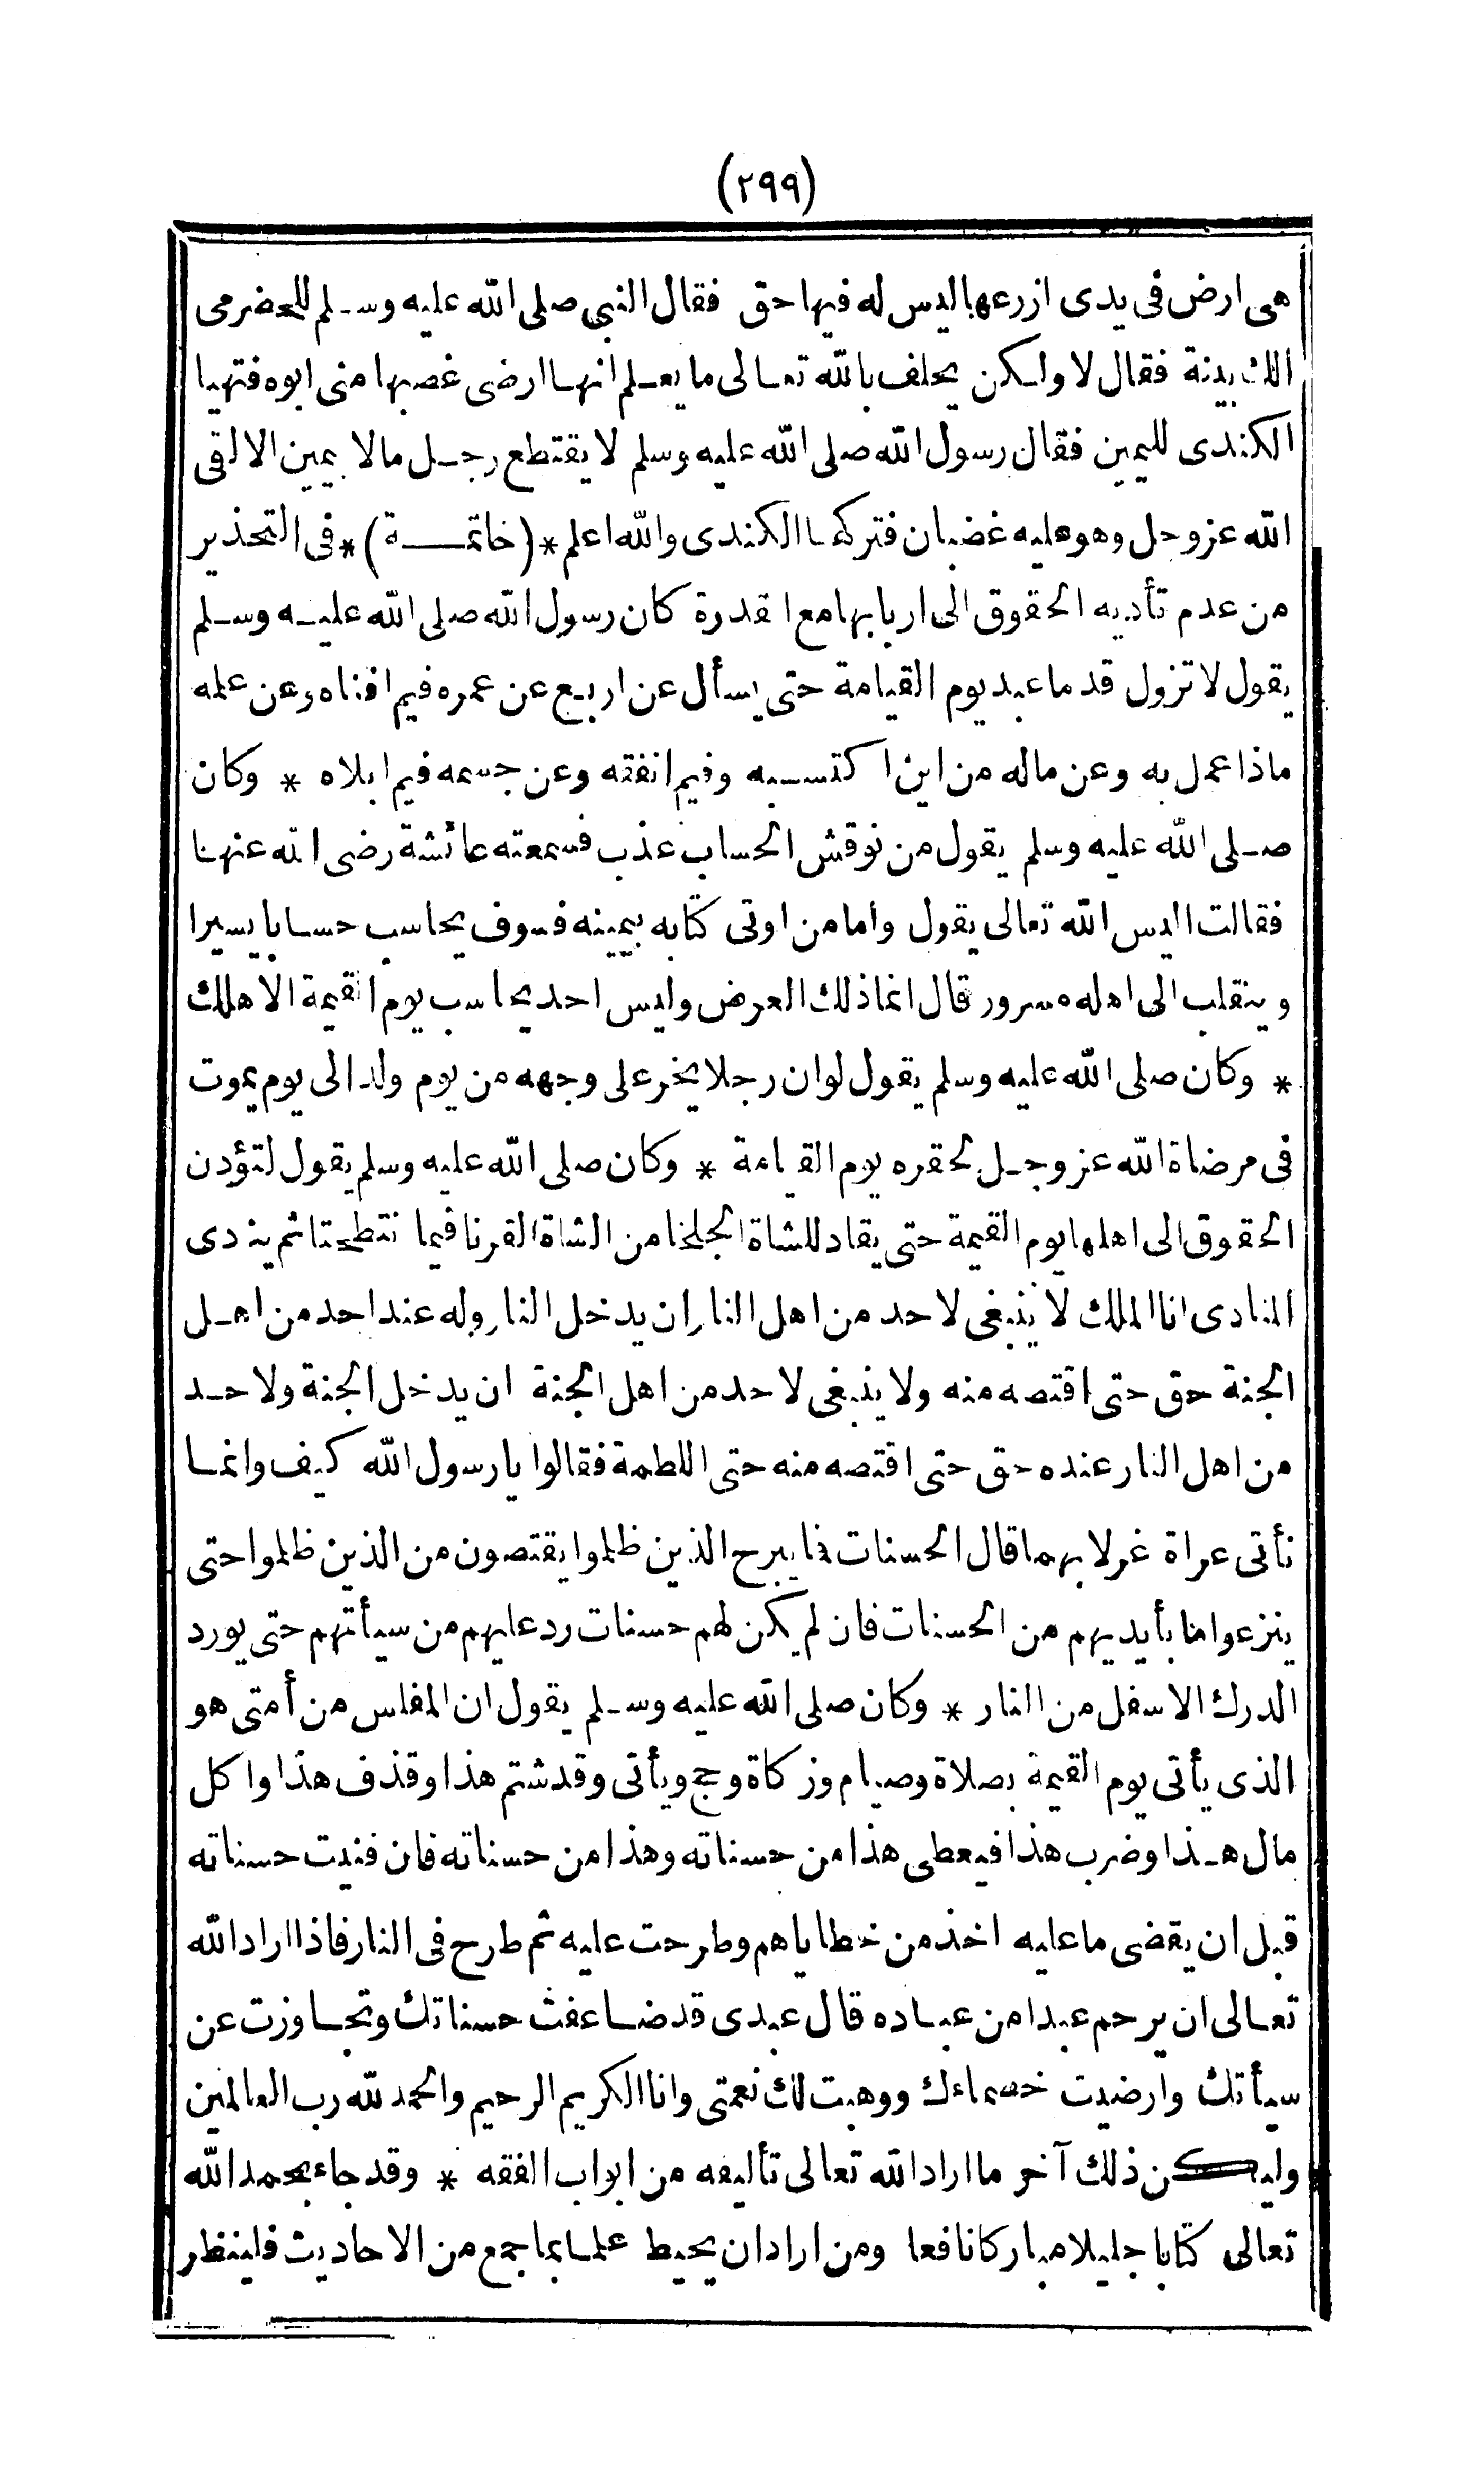 (٢٩٩)
هى ارض فى يدى ازرعها ليس له فيها حق فقال النبى صلى الله عليه وسلم للحضرمى
الك بينة فقال لا ولكن يحلف بالله تعالى ما يعلم انها ارضى غصبها منى ابوه فتهيا
الكندى لليمين فقال رسول الله صلى الله عليه وسلم لا يقتطع رجل مالا بيمين الا لقى
الله عز وجل وهو عليه غضبان فتركها الكندى والله اعلم * (خاتمة) * فى التحذير
من عدم تأديه الحقوق الى اربابها مع القدرة كان رسول الله صلى الله عليه وسلم
يقول لا تزول قدما عبد يوم القيامة حتى يسأل عن اربع عن عمره فيم افناه وعن علمه
ماذا عمل به وعن ماله من اين اكتسبه وفيم انفقه وعن جسمه فيم ابلاه * وكان
صلى الله عليه وسلم يقول من نوقش الحساب عذب فسمعته عائشة رضى الله عنها
فقالت اليس الله تعالى يقول واما من اوتى كتابه بيمينه فسوف يحاسب حسابا يسيرا
وينقلب الى اهله مسرور قال انما ذلك العرض وليس احد يحاسب يوم القيمة الا هلك
* وكان صلى الله عليه وسلم يقول لو ان رجلا يخر على وجهه من يوم ولد الى يوم يموت
فى مرضاة الله عز وجل لحقره يوم القيامة * وكان صلى الله عليه وسلم يقول لتؤدن
الحقوق الى اهلها يوم القيمة حتى يقاد للشاة الجلخا من الشاة القرنا فيما نتطحتا ثم ينادى
المنادى انا الملك لا ينبغى لاحد من اهل النار ان يدخل النار وله عند احد من اهل
الجنة حق حتى اقتصه منه ولا ينبغى لاحد من اهل الجنة ان يدخل الجنة ولاحد
من اهل النار عنده حق حتى اقتصه منه حتى اللطمة فقالوا يا رسول الله كيف وانما
نأتى عراة غرلا بهما قال الحسنات فما يبرح الذين ظلموا يقتصون من الذين ظلموا حتى
ينزعوا ما بأيديهم من الحسنات فان لم يكن لهم حسنات رد عليهم من سيأتهم حتى يورد
الدرك الاسفل من النار * وكان صلى الله عليه وسلم يقول ان المفلس من أمتى هو
الذى يأتى يوم القيمة بصلاة وصيام وزكاة وحج ويأتى وقد شتم هذا وقذف هذا واكل
مال هذا وضرب هذا فيعطى هذا من حسناته وهذا من حسناته فان فنيت حسناته
قبل ان يقضى ما عليه اخذ من خطاياهم وطرحت عليه ثم طرح فى النار فاذا اراد الله
تعالى ان يرحم عبدا من عباده قال عبدى قد ضاعفت حسناتك وتجاوزت عن
سيأتك وارضيت خصماءك ووهبت لك نعمتى وانا الكريم الرحيم والحمد لله رب العالمين
وليكن ذلك آخر ما اراد الله تعالى تأليفه من ابواب الفقه * وقد جاء بحمد الله
تعالى كتابا جليلا مباركا نافعا ومن اراد ان يحيط علما بما جمع من الاحاديث فلينظر